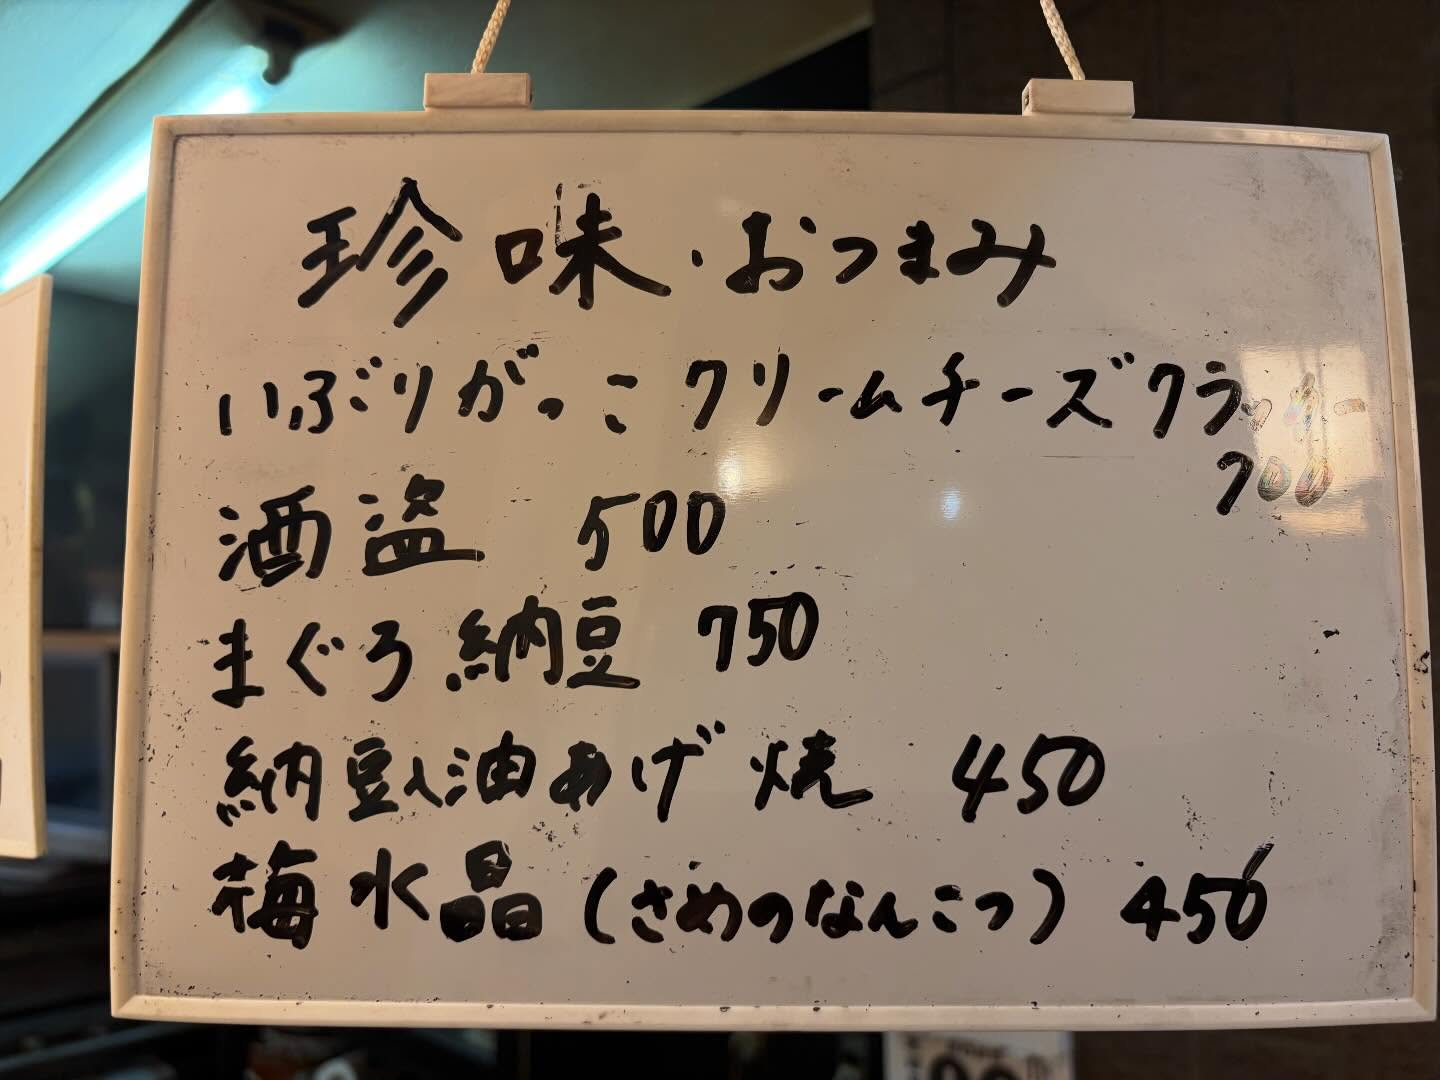 珍味・おつまみ
いぶりがっこクリームチーズクラッカー
700
酒盗 500
まぐろ納豆 750
納豆油あげ焼 450
梅水晶(さめのなんこつ) 450